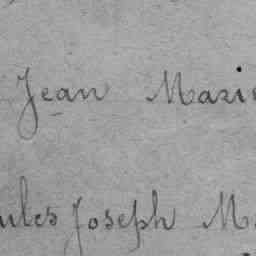 Jean Marie
ules Joseph M